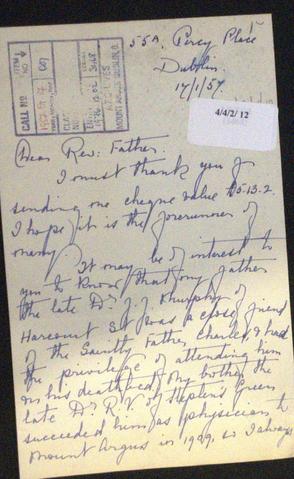 55A, Percy Place
Dublin.
17/1/57.
CALL NO.
ARCHIVES
MOUNT ARGUS DUBLIN, 6
4/4/2/ 12
Dear Rev: Father.
I must thank you for
sending me cheque value £5-13-2.
I hope it is the forerunner of
many.
It may be of interest to
you to know that my father
the late Dr. J. J. Murphy of
Harcourt St was a close friend
of the Saintly Father Charles, & had
the privilege of attending him
on his deathbed. My brother the
late Dr. of Stephens Green
succeeded him as physician to
Mount Argus in so I always